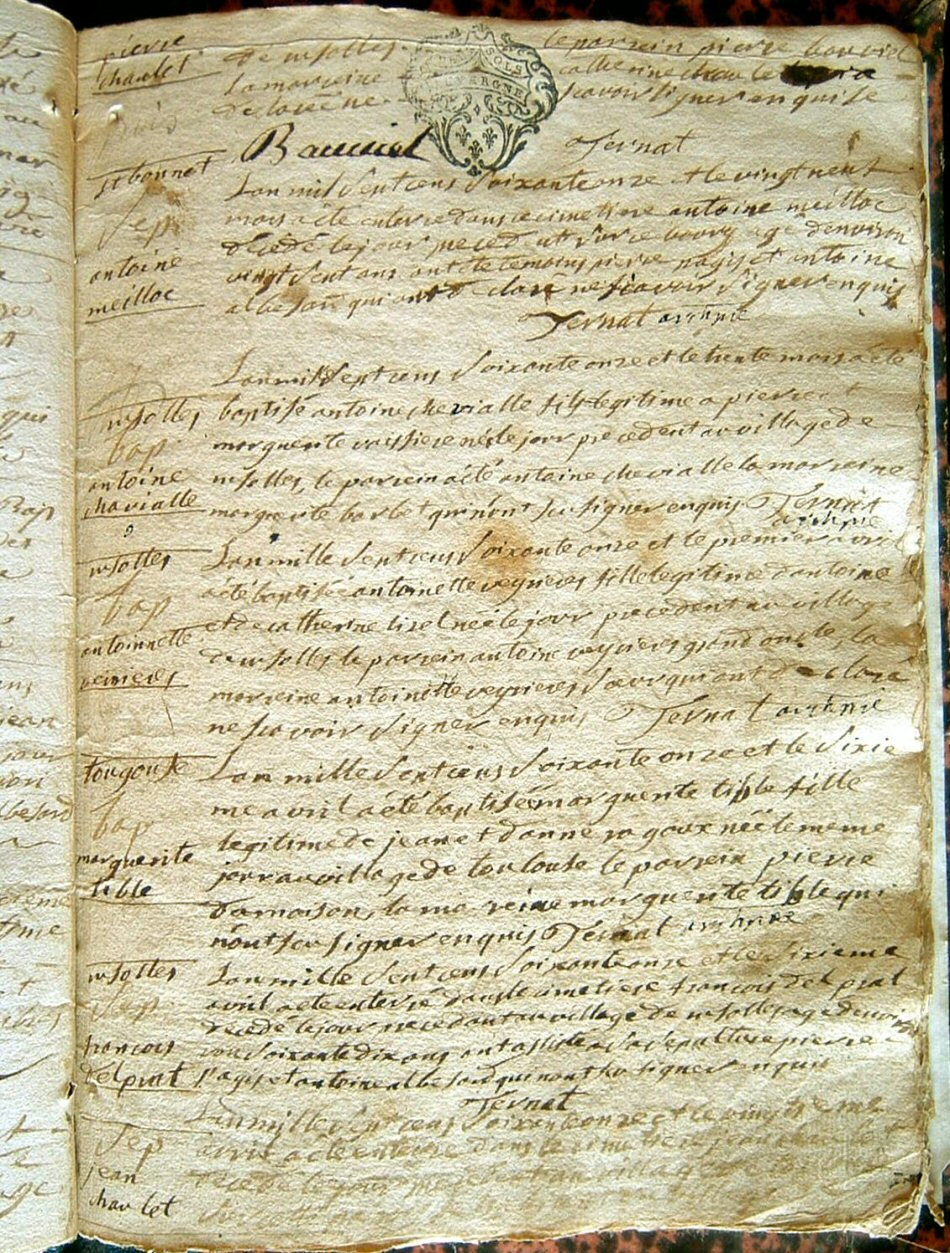 pierre
chaulet
de usolles
le parrein pierre
la marreine
catherine chaulet
sçavoir signer enquise
SOLS
VERGNE
Ternat
st bonnet
sep
antoine
meilloc
L'an mil sept cens soixante onze et le vingt neuf
mars a été enterré dans ce cimetiere antoine meilloc
décédé le jour precedent sur ce bourg agé d'environ
vingt sept ans ont été temoins pierre pagis et antoine
albesart qui ont declaré ne sçavoir signer enquis
Ternat archipre
usolles
bap
antoine
chavialle
L'an mil sept cens soixante onze et le trente mars a été
baptisé antoine chevialle fils legitime a pierre et
marguerite vaissiere né le jour precedent au village de
usolles, le parrein a été antoine chevialle la marreine
marguerite barbet qui n'ont sçu signer enquis Ternat
archipre
usolles
bap
antoinnette
veirieres
L'an mille sept cens soixante onze et le premier avril
a été baptisée antoinette veyrieres fille legitime d'antoine
et de catherine née le jour precedent au village
de usolles le parrein antoine veyrieres grand oncle la
marreine antoinette veyrieres sœur qui ont declaré
ne sçavoir signer enquis Ternat archipre
tougouse
bap
marguerite
tible
L'an mille sept cens soixante onze et le sixie
me avril a été baptisée marguerite tible fille
legitime de jean et d'anne ragoux née le meme
jour au village de toulouse le parrein pierre
damaison, la marreine marguerite tible qui
n'ont sçu signer enquis Ternat archipre
usolles
sep
françois
delprat
L'an mille sept cens soixante onze et le sixieme
avril a été enterré dans le cimetiere françois delprat
decedé le jour precedant au village de usolles agé d'envi
ron soixante dix ans ont assisté a sa sepulture pierre
pagis et antoine albesart qui n'ont sçu signer enquis
Ternat
sep
jean
chaulet
L'an mille sept cens soixante onze et le vingtieme
avril a été enterré dans le cimetiere jean chaulet
decedé le jour precedent au village